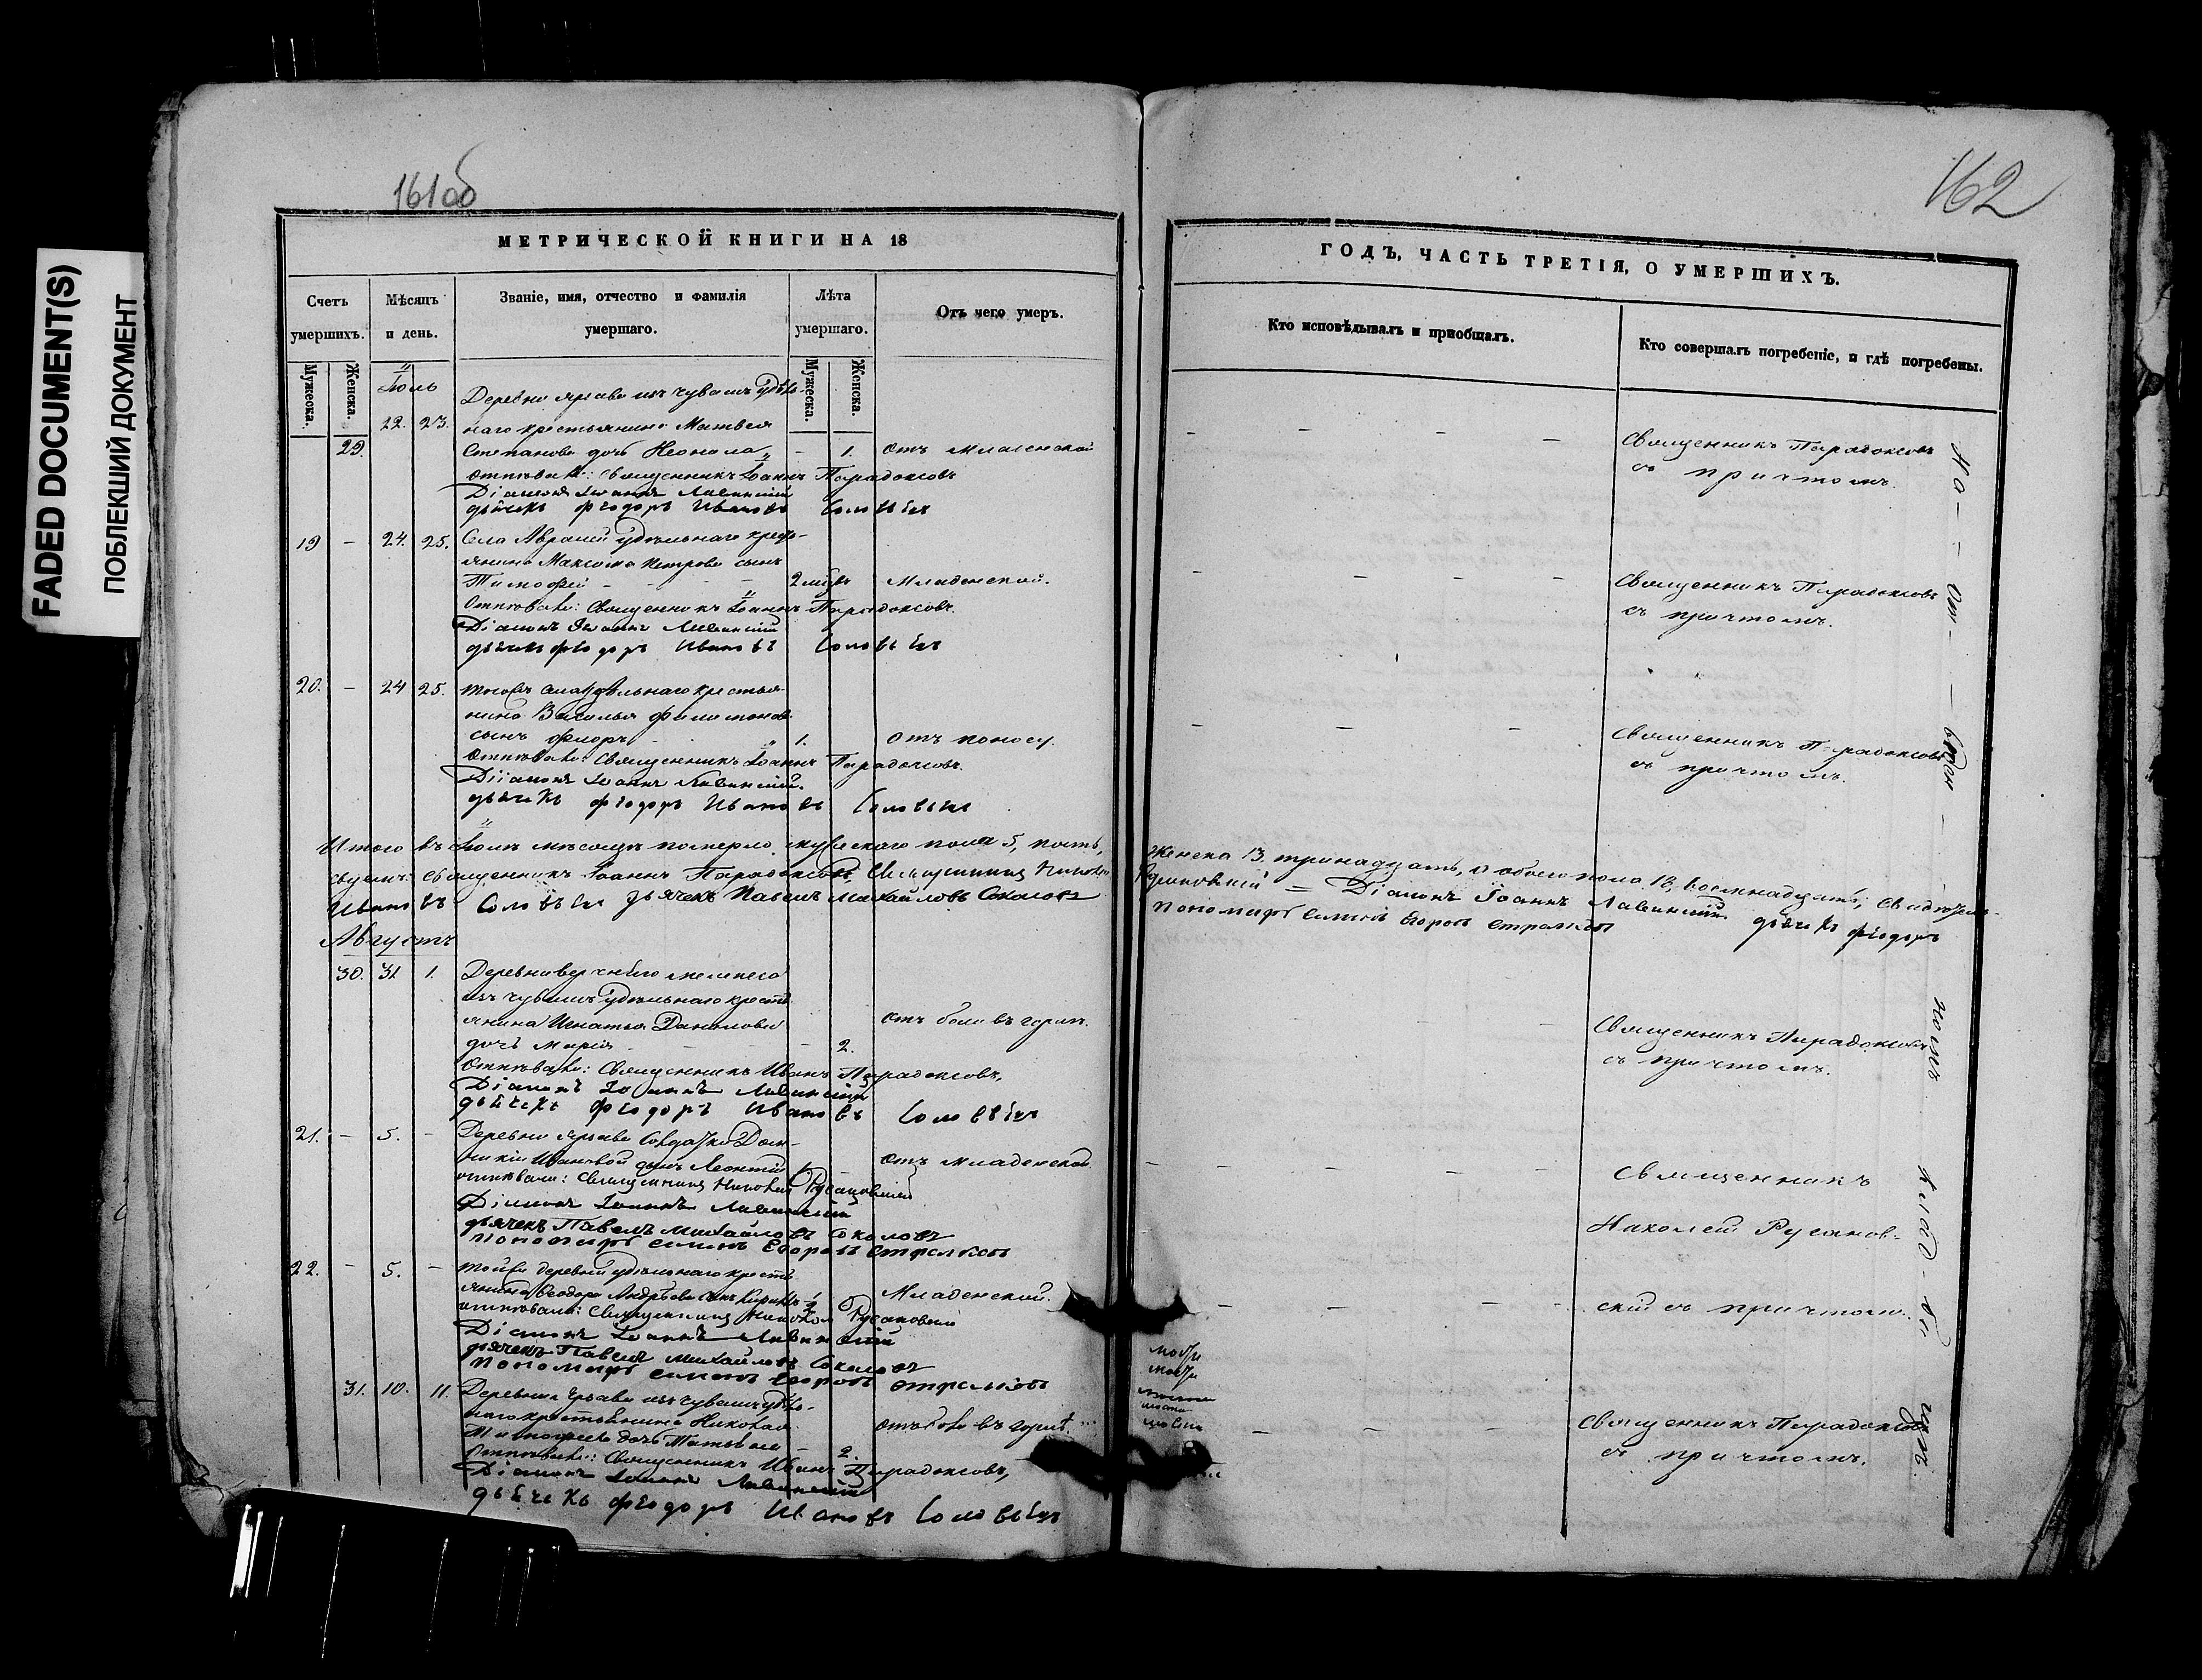 FADED DOCUMENT(S)
ПОБЛЕКШИЙ ДОКУМЕНТ
161об
МЕТРИЧЕСКОЙ КНИГИ НА 18
Счетъ умершихъ.
Мѣсяцъ и день.
Званіе, имя, отчество и фамилія умершаго.
Лѣта умершаго.
Отъ чего умеръ.
Мужеска.
Женска.
Мужеска.
Женска.
Іюль
29. 22. 23.
Деревни изъ чувашъ удѣль-
наго крестьянина Матвея
Степанова дочь – 1. отъ младенской
отпѣвали: священникъ Іоаннъ Парадоксовъ
Діаконъ Іоаннъ Лавинскій
дьячекъ Феодоръ Ивановъ Соловьевъ
19 – 24. 25. Села удѣльнаго кресть-
янина Максима Петрова сынъ
Тимофей – – – 2 младенской.
Отпѣвали: Священникъ Іоаннъ Парадоксовъ.
Діаконъ Іоаннъ Лавинскій
дьячекъ Феодоръ Ивановъ Соловьевъ
20. – 24 25. тогожъ села удѣльнаго крестья-
нина Василья Филимонова
сынъ Флоръ 1. отъ поносу.
отпѣвали: Священникъ Іоаннъ Парадоксовъ.
Діаконъ Іоаннъ Лавинскій.
дьячекъ Феодоръ Ивановъ Соловьевъ
Итого въ Іюлѣ мѣсяцѣ померло мужескаго пола 5, пять,
священникъ Іоаннъ Парадоксовъ, Священникъ Николай
Ивановъ Соловьевъ дьячекъ Павелъ Михайловъ Соколовъ
Августъ
30. 31 1. Деревни
изъ чувашъ удѣльнаго кресть-
янина Игнатья Данилова отъ боли въ горлѣ.
дочь Марія – – 2.
отпѣвали: Священникъ Иванъ Парадоксовъ,
Діаконъ Іоаннъ Лавинскій
дьячекъ Феодоръ Ивановъ Соловьевъ
21. – 5. – Деревни солдатки Дом-
Ивановой сынъ Леонтій отъ младенской
отпѣвали: Священникъ Николай Русановскій
Діаконъ Іоаннъ Лавинскій
дьячекъ Павелъ Михайловъ Соколовъ
пономарь Симонъ Егоровъ Стрелковъ
22. – 5. – той же деревни удѣльнаго кресть-
янина Ѳеодора Андрѣева сынъ младенской.
отпѣвали: Священникъ Николай Русановскій
Діаконъ Іоаннъ Лавинскій
дьячекъ Павелъ Михайловъ Соколовъ
пономарь Симонъ Егоровъ Стрелковъ
31. 10. 11. Деревни изъ чувашъ удѣль-
наго крестьянина Николая отъ боли въ горлѣ.
Тимофеева дочь – 2.
Отпѣвали: Священникъ Иванъ Парадоксовъ,
Діаконъ Іоаннъ Лавинскій
дьячекъ Феодоръ Ивановъ Соловьевъ
162
ГОДЪ, ЧАСТЬ ТРЕТІЯ, О УМЕРШИХЪ.
Кто исповѣдывалъ и пріобщалъ.
Кто совершалъ погребеніе, и гдѣ погребены.
Священникъ Парадоксовъ
съ причтомъ.
Священникъ Парадоксовъ
съ причтомъ.
Священникъ Парадоксовъ
съ причтомъ.
женска 13, тринадцать, а обоего пола 18, восемнадцать;
Русановскій = Діаконъ Іоаннъ Лавинскій дьячекъ Феодоръ
пономарь Симонъ Егоровъ Стрелковъ
Священникъ Парадоксовъ
съ причтомъ.
Священникъ
Николай Русанов-
скій съ причтомъ.
Священникъ Парадоксовъ
съ причтомъ.
На – – от – – вѣден – –
номъ
клад – би
щѣ.